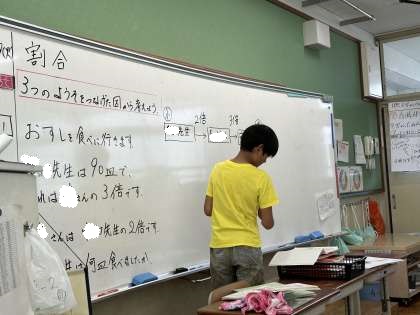 割合
3つのようそをつなげた図から考えよう。
① 2倍 3倍
先生 → →
おすしを食べに行きます。
先生は90皿で、
れは さんの3倍です。
さんは 先生の2倍です。
は何皿食べましたか。